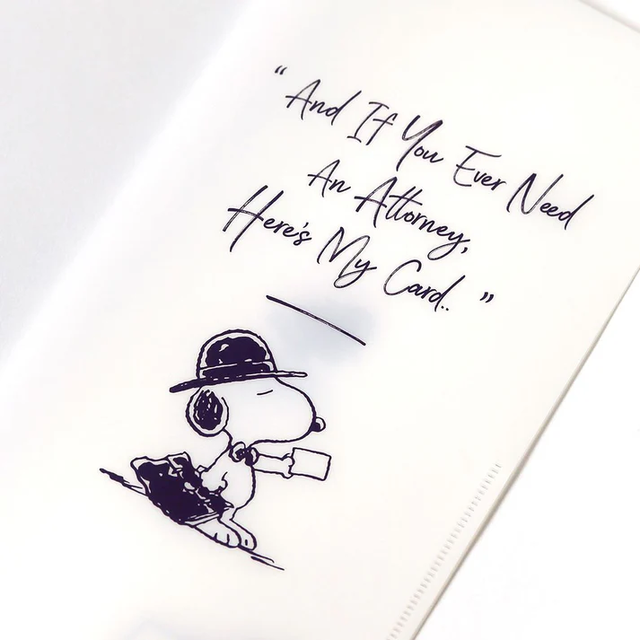 “And If You Ever Need
An Attorney,
Here's My Card..”